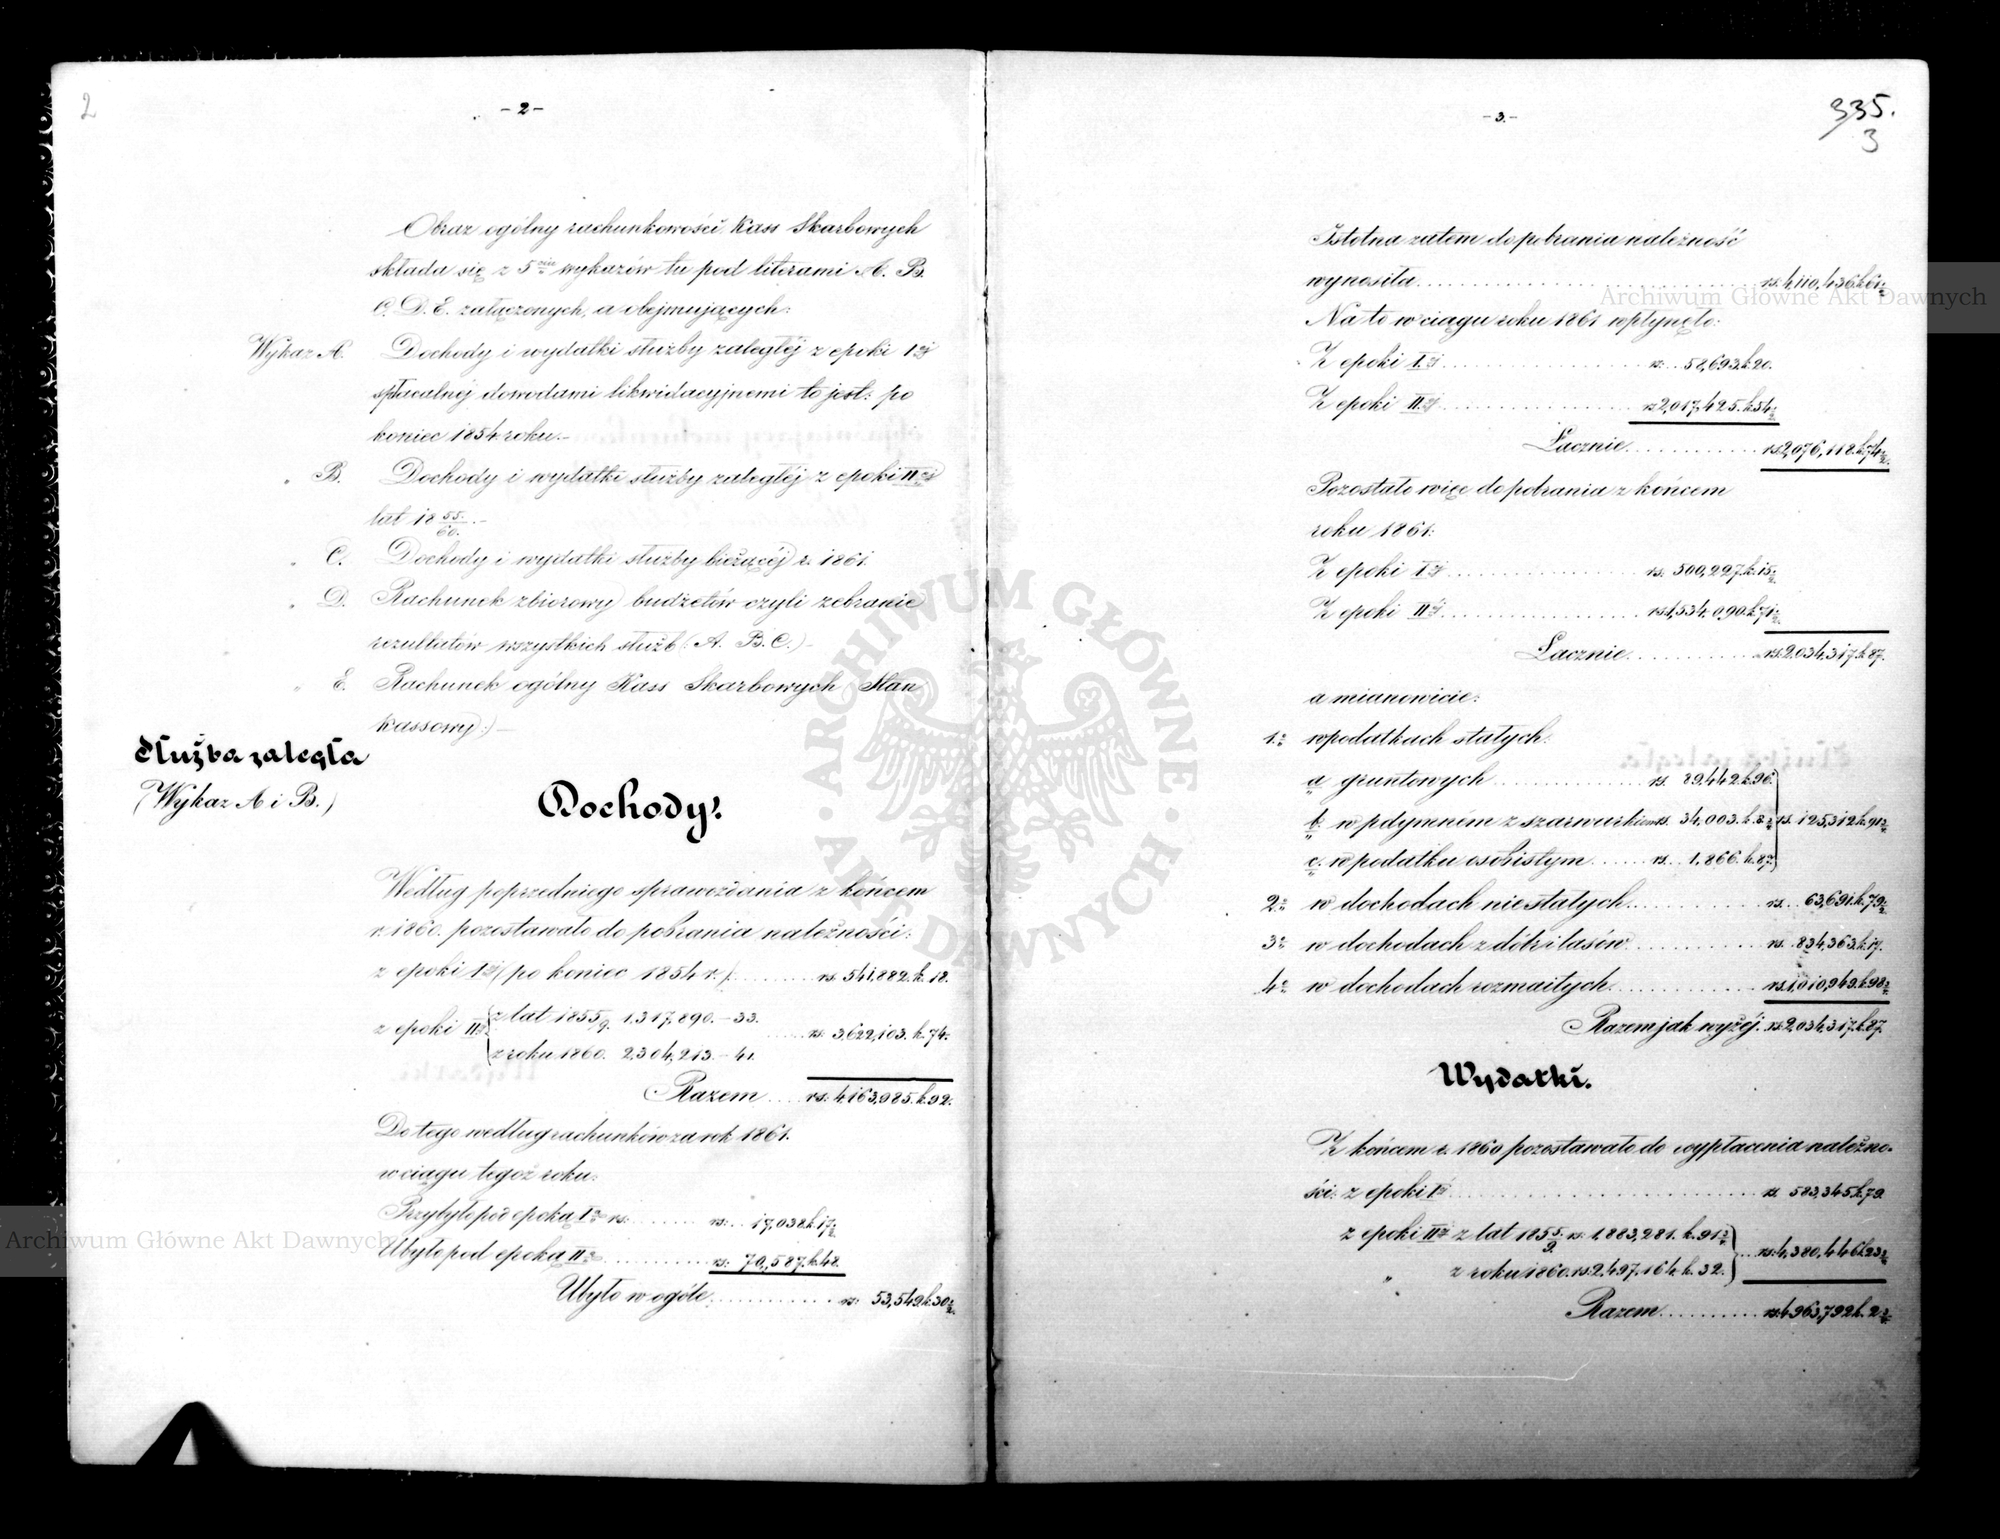 2
- 2 -
Obraz ogólny rachunkowości Kass Skarbowych
składa się z 5ciu wykazów tu pod literami A. B.
C. D. E. załączonych, a obejmujących:
Wykaz A. Dochody i wydatki służby zaległéj z epoki Iéj
spłacalnéj dowodami likwidacyjnemi to jest: po
koniec 1854 roku.-
„ B. Dochody i wydatki służby zaległéj z epoki IIéj
lat 18 55/60.-
„ C. Dochody i wydatki służby bieżącéj r. 1861.
„ D. Rachunek zbiorowy budżetów czyli zebranie
rezultatów wszystkich służb (A. B. C.)-
„ E. Rachunek ogólny Kass Skarbowych (Stan
kassowy:)-
Służba zaległa
(Wykaz A i B.)
Dochody:
Według poprzedniego sprawozdania z końcem
r. 1860. pozostawało do pobrania należności:
z epoki Iéj (po koniec 1854 r.) ........ rs. 541,882. k. 18.
z epoki IIéj { z lat 1855/9. 1,317,890. - 33.
z roku 1860. 2,304,213. - 41. ..... rs. 3,622,103. k. 74.
Razem .... rs. 4,163,985. k. 92.
Do tego według rachunków za rok 1861.
w ciągu tegoż roku:
Przybyło pod epoką Ią rs. ........ rs. 17,038. k. 17½
Ubyło pod epoką IIą ........ rs. 70,587. k. 48.
Ubyło w ogóle ............ rs. 53,549 k. 30½
- 3. -
335.
3
Istotna zatem do pobrania należność
wynosiła ........ rs. 4,110,436 k. 61½
Na to w ciągu roku 1861 wpłynęło:
Z epoki Iéj ........ rs. 58,693. k. 20.
Z epoki IIéj ........ rs. 2,017,425. k. 54½
Łącznie ........ rs. 2,076,118. k. 74½
Pozostało więc do pobrania z końcem
roku 1861:
Z epoki Iéj ........ rs. 500,227. k. 15½
Z epoki IIéj ........ rs. 1,534,090. k. 71½
Łącznie ........ rs. 2,034,317. k. 87.
a mianowicie:
1.o w podatkach stałych:
a gruntowych ........ rs. 89,442. k. 96.
b. w pdymném z szarwarkiem rs. 34,003. k. 8½ rs. 125,312 k. 91½
c. w podatku osobistym ...... rs. 1,866. k. 87.
2.o w dochodach niestałych ........ rs. 63,691. k. 79½
3.o w dochodach z dóbr i lasów ........ rs. 834,363. k. 17.
4.o w dochodach rozmaitych ........ rs. 1,010,949. k. 98½
Razem jak wyżéj. rs. 2,034,317. k. 87.
Wydatki.
Z końcem r. 1860 pozostawało do wypłacenia należno-
ści: z epoki Iéj ........ rs. 583,345 k. 79.
z epoki IIéj z lat 1855/9. rs. 1,883,281. k. 91½
„ z roku 1860. rs. 2,497,164. k. 32. ... rs. 4,380,446 k. 23½
Razem .......... rs. 4,963,792 k. 2½
Archiwum Główne Akt Dawnych
Archiwum Główne Akt Dawnych
ARCHIWUM GŁÓWNE AKT DAWNYCH